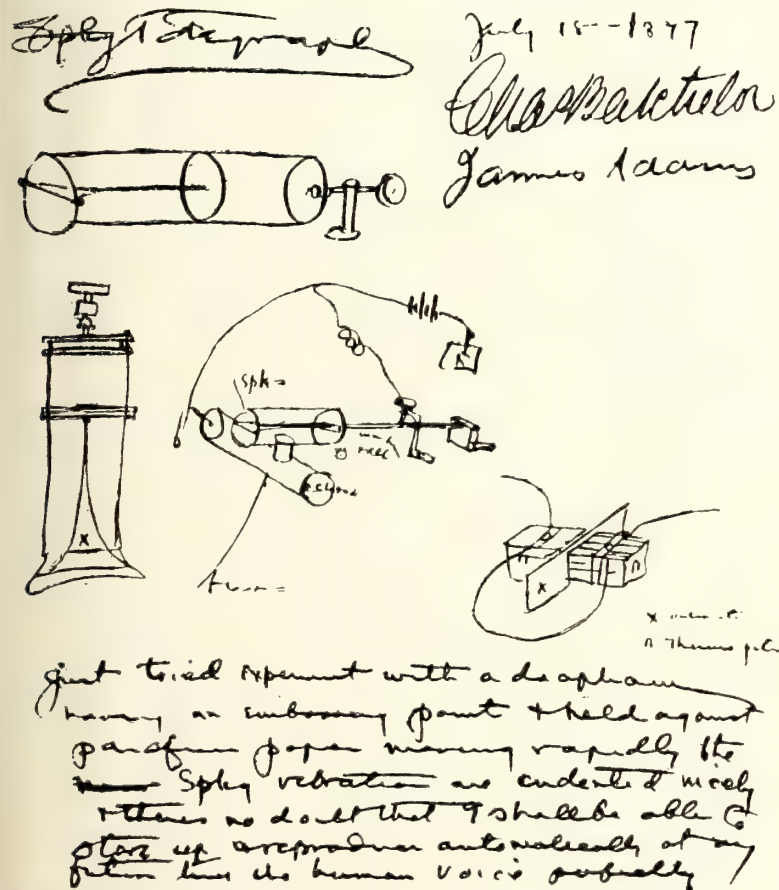 Spkg Telegraph
July 18--1877
Chas Batchelor
James Adams
Spk=
X
X
n
just tried experiment with a diaphram
having an embossing point & held against
parafin paper moving rapidly the
Spkg vibrations are indented nicely
& theres no doubt that I shall be able to
store up & reproduce automatically at any
future time the human voice perfectly